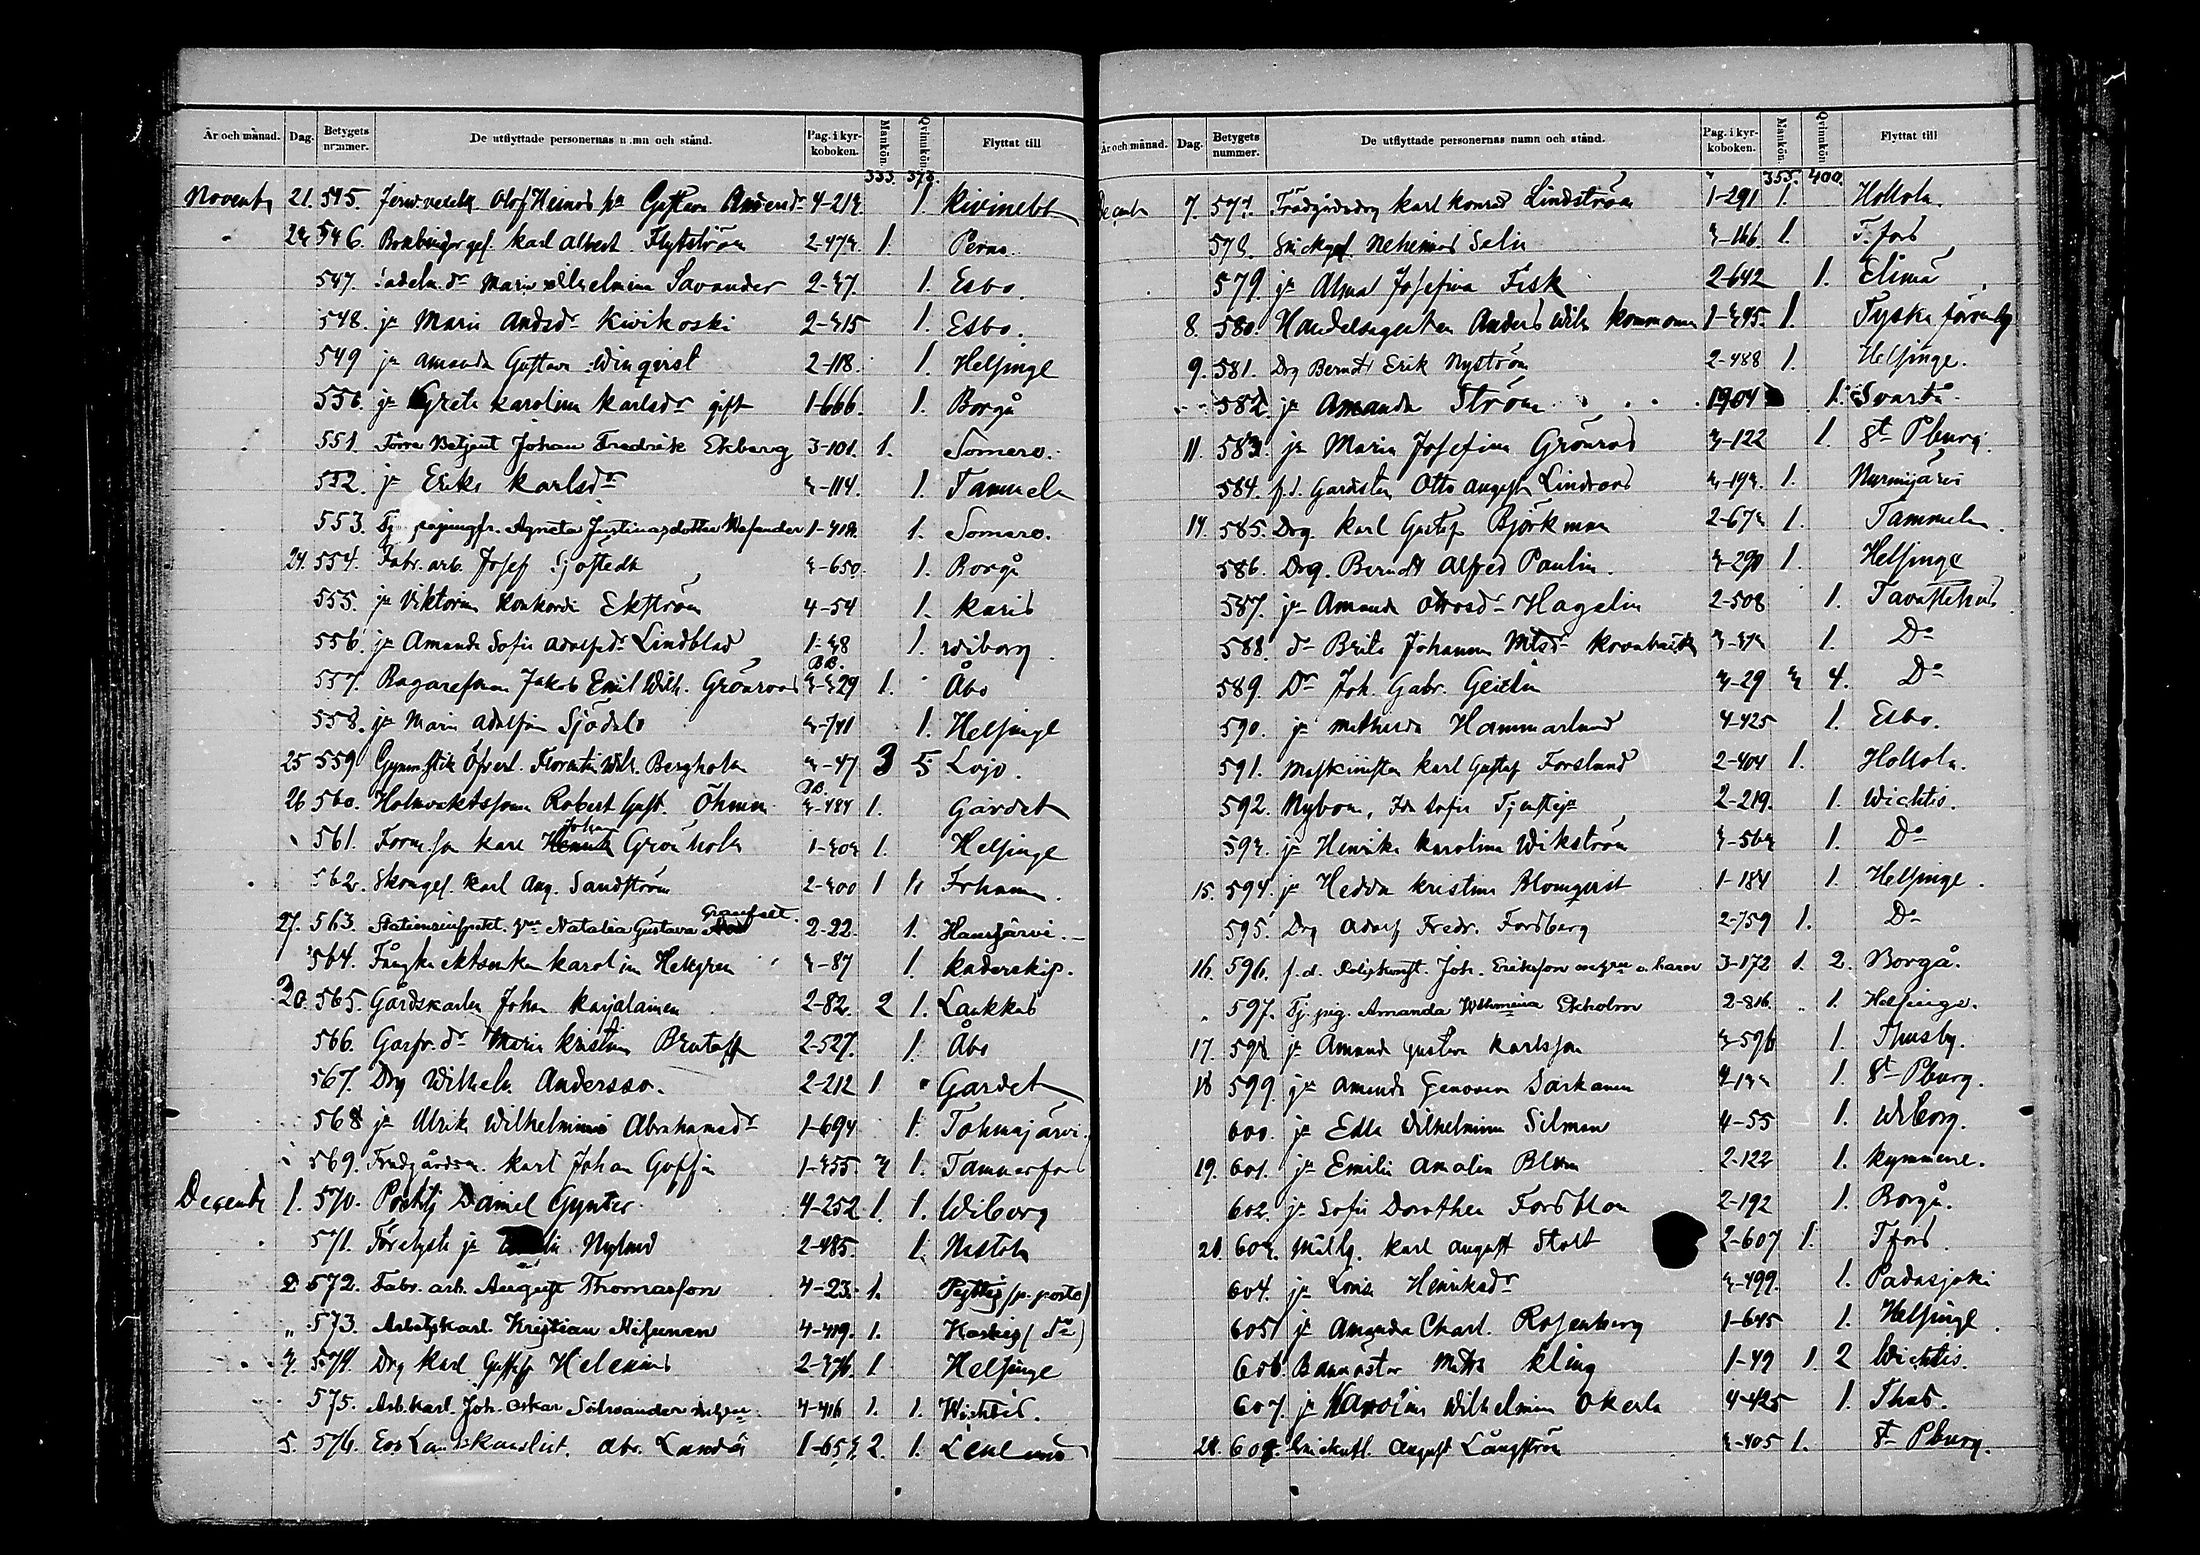 År och månad. Dag. Betygets nummer. De utflyttade personernas namn och stånd. Pag. i kyrkoboken. Mankön. Qvinnkön. Flyttat till
333. 373.
Novemb 21. 545. Olof Heimos Gustava 4-214. 1. Kivinebb
546. Karl Albert Flytström 2-474. 1. Perno.
547. Maria Wilhelmina Savander 1. Esbo.
548. jn Maria Andsdr Kivikoski 2-315 1. Esbo.
549 jn Amanda Gustava Winqvist 2-118. 1. Helsinge
550. jn Greta Karolina Karlsdr gift 1-666. 1. Borgå
551. Förre Betjent Johan Fredrik Ekberg 3-101. 1. Somero.
552. jn Erika Karlsdr 3-114. 1. Tammela
553. Agneta Justinasdotter 1. Somero.
24. 554. Fabr. arb. Josef Sjöstedt 3-650. 1. Borgå
555. jn Viktorina Konkordia Ekström 4-54 1. Karis
556. jn Amanda Sofia Adolfsdr Lindblad 1-38 1. Wiborg
557. Bagareson Jakob Emil Wilh. Grönroos B.B. 3-329 1. Åbo
558. jn Maria Adolfina Sjödelo 3-741 1. Helsinge
25 559 Gymnstik Öfverl. Florentin Wilh. Bergholm 3-47 3 5 Lojo.
26 560. Holmvaktsson Robert Gust. Öhman B.B. 3-484 1. Gardet
561. Karl Johan Grönholm 1-303 1. Helsinge
562. Skomgs. Karl Aug. Sandström 2-300 1 1. Frhamn.
27. 563. Stationsinspekt. Natalia Gustava Granfelt. 2-22. 1. Hausjärvi.
564. Karolina Hellgren 3-87 1. Kaderskip.
565. Gårdskarlen Johan Karjalainen 2-82. 2 1. Laukkas
566. Garfr. dr Maria Kristina 2-527. 1. Åbo
567. Drg Wilhelm Andersso. 2-212 1. Gardet
568 jn Ulrika Wilhelmina Abrahamsdr 1-694 1. Tohmajärvi.
569. Trädgårdsm. Karl Johan 1-355. 3 1. Tammerfors
Decemb 1. 570. Daniel Gynter 4-252 1. 1. Wiborg
571. jn Nylund 2-485. 1. Nastola
2 572. Fabr. arb. August Thomasson 4-23. 1. Pyttis (p. posto)
" 573. Arbetskarl. Kristian 4-419. 1. (do)
3. 574. Drg Karl Gustaf Helenius 2-376. 1. Helsinge
575. Arb.karl. Joh. Oskar Silwander 4-416 1. 1. Wichtis.
5. 576. Abr. Landén 1-653 2. 1.
År och månad. Dag. Betygets nummer. De utflyttade personernas namn och stånd. Pag. i kyrkoboken. Mankön. Qvinnkön Flyttat till
355. 400.
Decemb 7. 577. Trädgårdsdrg Karl Konrad Lindström 1-291 1. Hollola.
578. Snickgs. Nehemias Selin 3-166. 1. T.fors
579. jn Alma Josefina Fisk 2-642 1. Elimä
8. 580. Handelsagenten Anders Wilh. Kommonen 1-345. 1. Tyska försmlg
9. 581. Drg Berndt Erik Nyström 2-488 1. Helsinge.
582. jn Amanda Ström 1904 1. Svartå
11. 583. jn Maria Josefina Grönroos 3-122 1. St Pburg.
584. f.d. Gardisten Otto August Lindroos 3-193. 1. Nurmijärvi
14. 585. Drg. Karl Gustaf Björkman 2-673 1. Tammela.
586. Drg. Berndt Alfred Paulin. 3-290 1. Helsinge
587. jn Amanda Ottosdr Hagelin 2-508 1. Tavastehus.
588. dr Brita Johanna Mtsdr 1. Do
589. Dr Joh. Gabr. Geitlin 3-29 3 4. Do
590. jn Mathilda Hammarlund 4-425 1. Esbo.
591. Maskinisten Karl Gustaf Forslund 2-404 1. Hollola.
592. Nybom, Ida Sofia 2-219. 1. Wichtis.
593. jn Henrika Karolina Wikström 3-563 1. Do
15. 594. jn Hedda Kristina Blomqvist 1-184 1. Helsinge.
595. Drg Adolf Fredr. Forsberg 2-759 1. Do
16. 596. f.d. Poliskonst. Joh. Eriksson m. hustru o. barn 3-172 1. 2. Borgå.
597. Tj. pig. Amanda Wilhelmina Ekholm 2-816. 1. Helsinge.
17. 598. jn Amanda Gustava Karlsson 3-596 1. Thusby.
18 599. jn Amanda Genoveva Sarkanen 4-133 1. St Pburg.
600. jn Edla Wilhelmina Silman 4-55 1. Wiborg.
19. 601. jn Emilia Amalia Blom 2-122 1. Kymmene.
602. jn Sofia Dorothea Forsblom 2-192 1. Borgå.
603. Karl August Stolt 2-607 1. T.fors.
604. jn Lovisa Henriksdr 3-499. 1. Padasjoki
605. jn Amanda Charl. Rosenberg 1-645 1. Helsinge.
606. Banmastar Matts Kling 1-49 1. 2 Wichtis.
607. jn Karolina Wilhelmina Okerla 4-425 1. Thus.
608. August Långström 3-405 1. St Pburg.